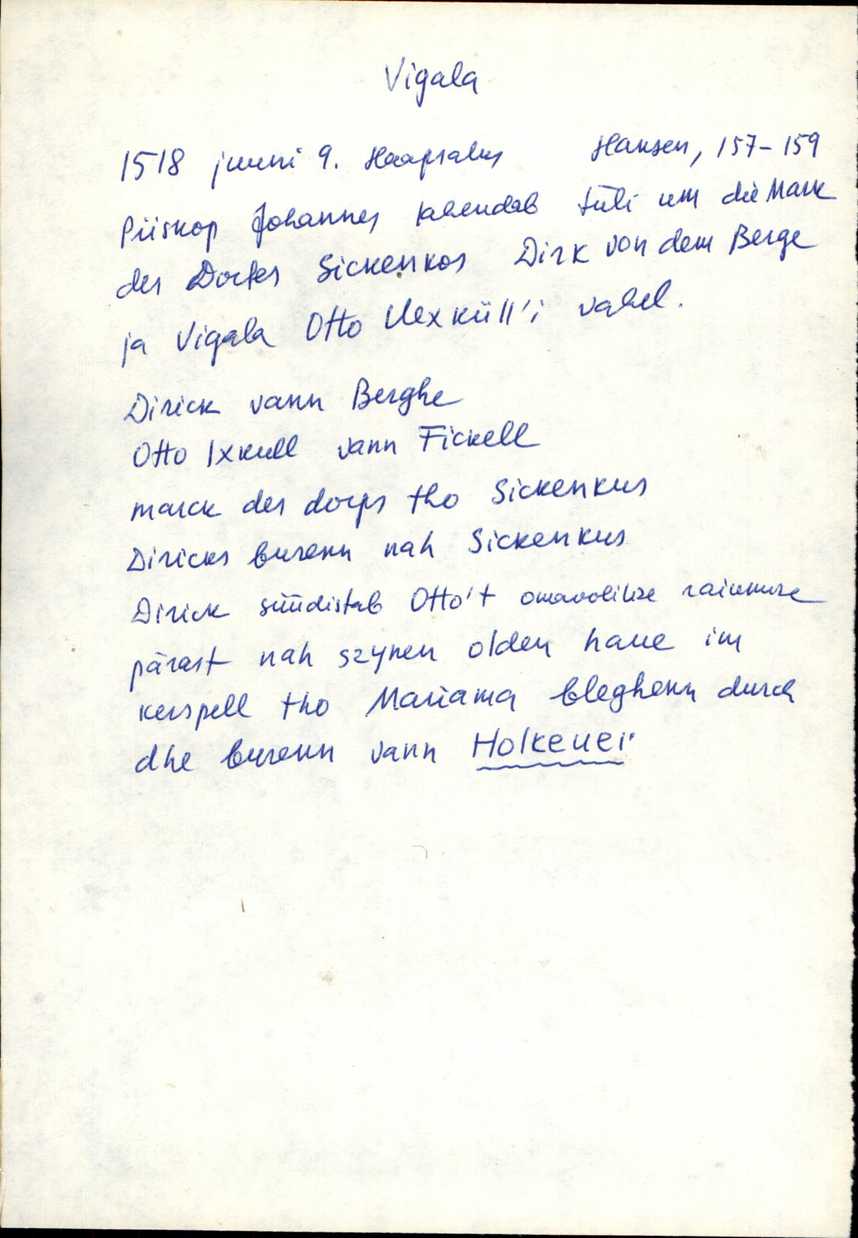 Vigala
1518 juuni 9. Haapsalus Hansen, 157-159
Piiskop Johannes lahendab tüli um die Mark
des Dorfes Sickenkos Dirk von dem Berge
ja Vigala Otto Uexküll'i vahel.
Dirick vann Berghe
Otto Ixkull vann Fickell
marck des dorps tho Sickenkus
Diricks burenn nah Sickenkus
Dirick süüdistab Otto't omavolilise raiumise
pärast nah szynen olden haue im
kerspell tho Mariama bleghenn durch
dhe burenn vann Holkeuer